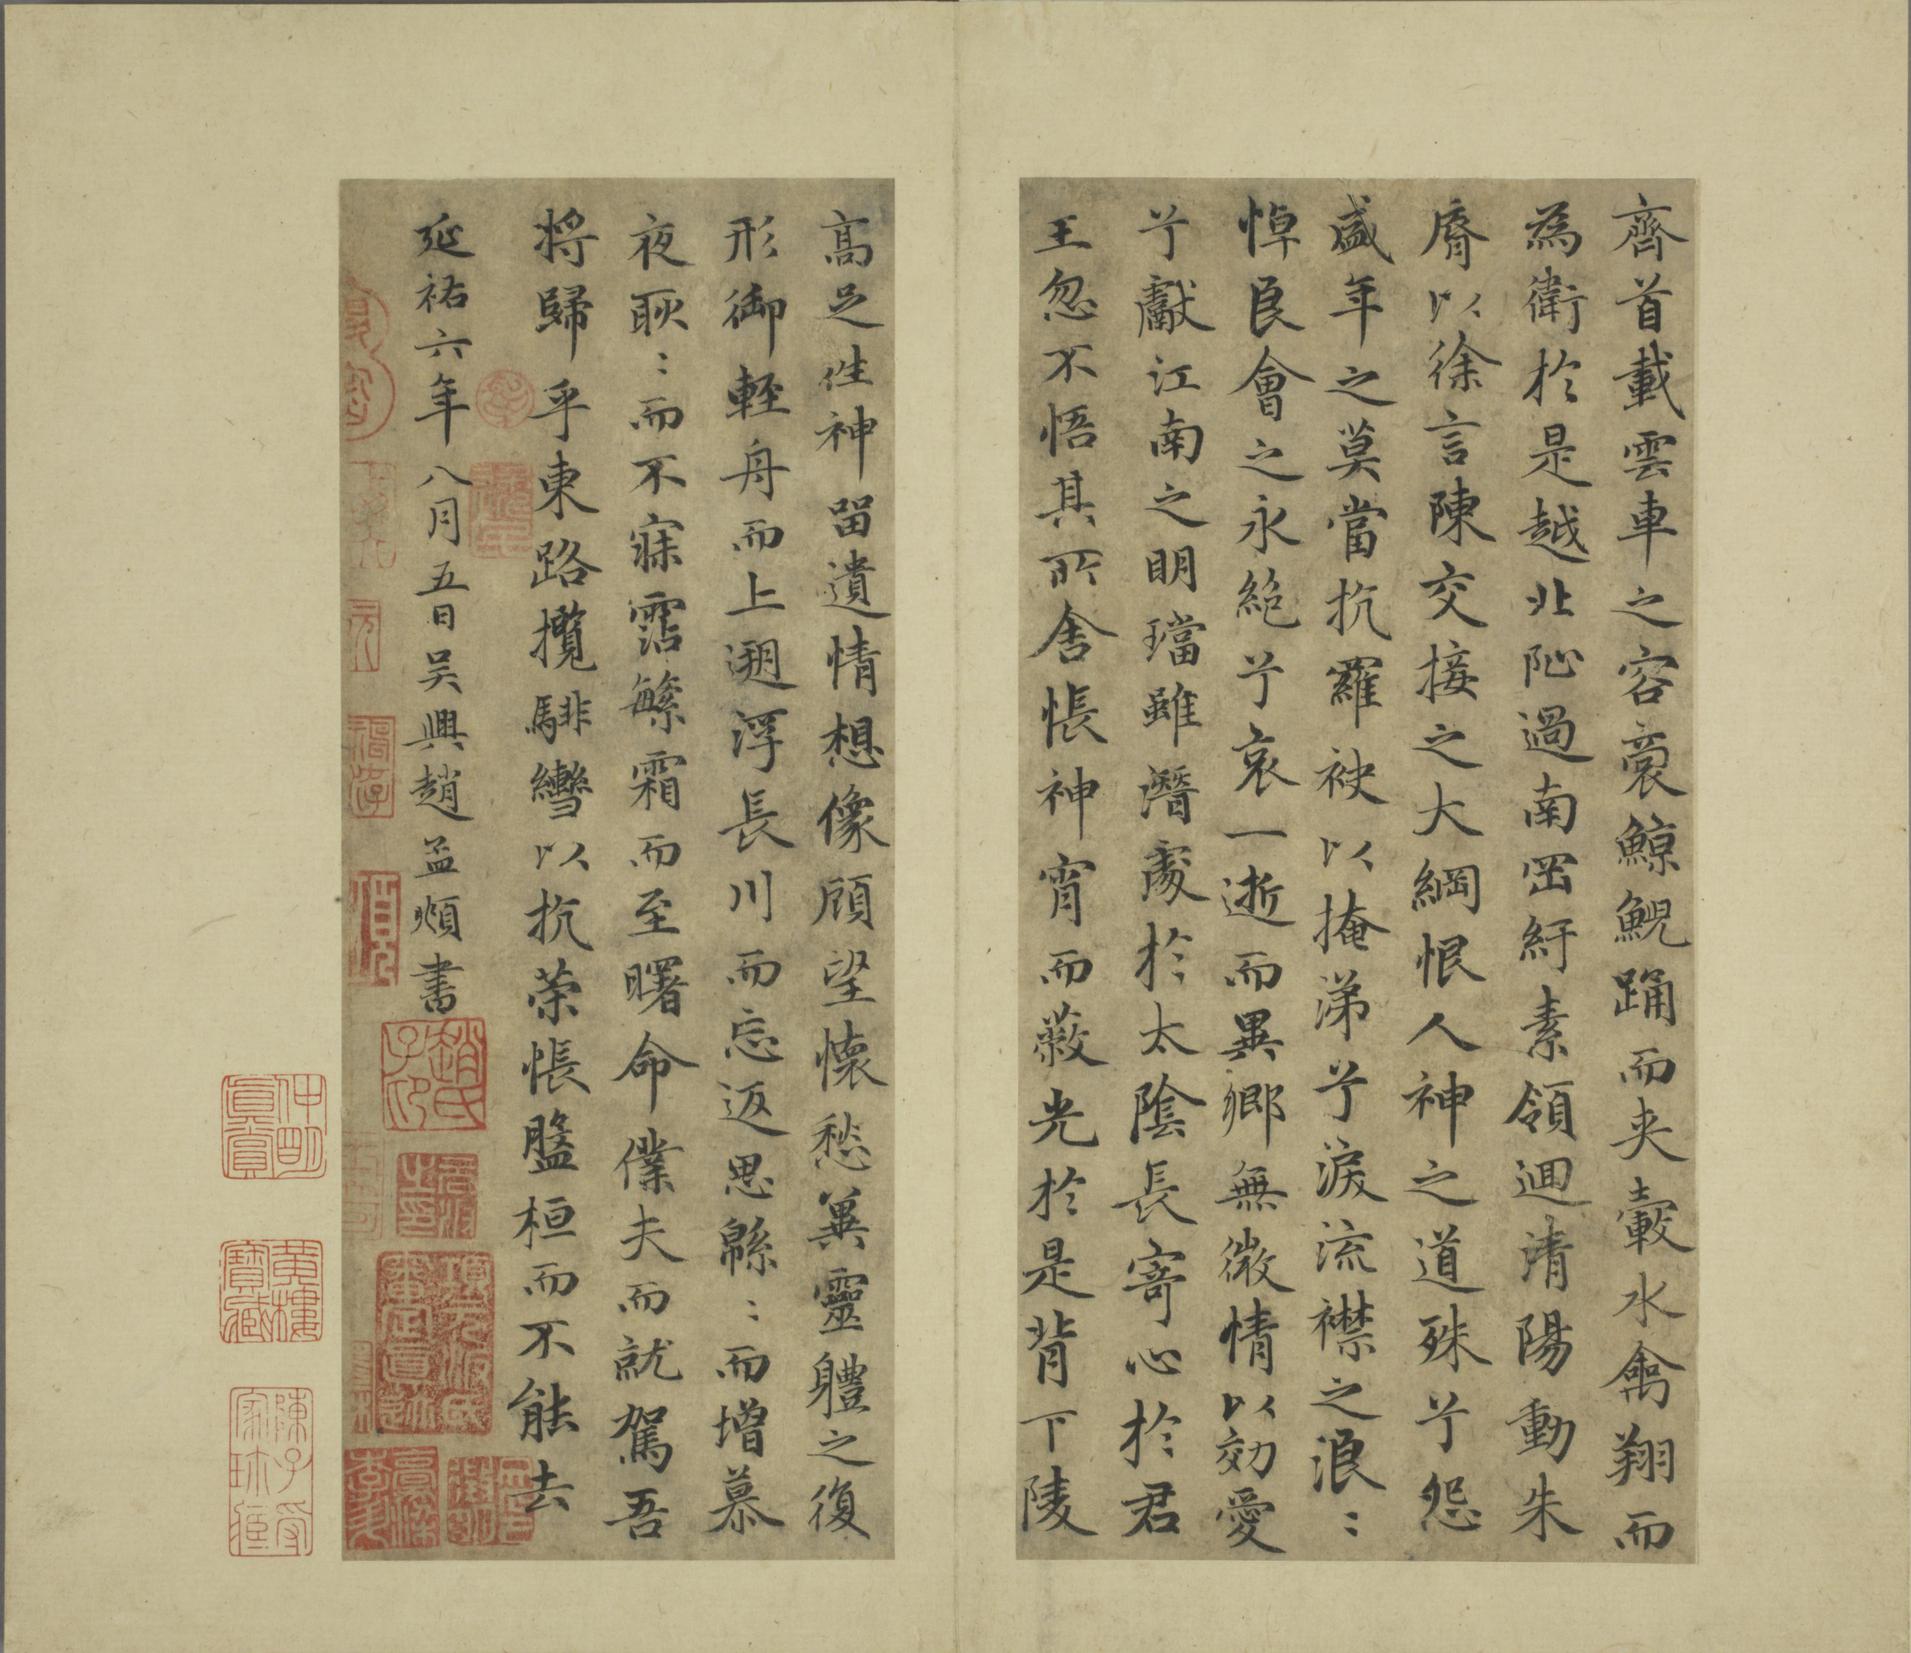 齊首載雲車之容裔鯨鯢踊而夾轂水禽翔而
為衛於是越北沚過南岡紆素領迴清陽動朱
脣以徐言陳交接之大綱恨人神之道殊兮怨
盛年之莫當抗羅袂以掩涕兮淚流襟之浪〻
悼良會之永絕兮哀一逝而異鄉無微情以効愛
兮獻江南之明璫雖潛處於太陰長寄心於君
王忽不悟其所舍悵神宵而蔽光於是背下陵
高足往神留遺情想像顧望懷愁冀靈軆之復
形御輕舟而上遡浮長川而忘返思緜〻而增慕
夜耿〻而不寐霑繁霜而至曙命僕夫而就駕吾
將歸乎東路攬騑轡以抗策悵盤桓而不能去
延祐六年八月五日吳興趙孟頫書
趙氏子印
項元汴氏審定真跡
仲明真賞
黃樓寶藏
陳子受家珍藏